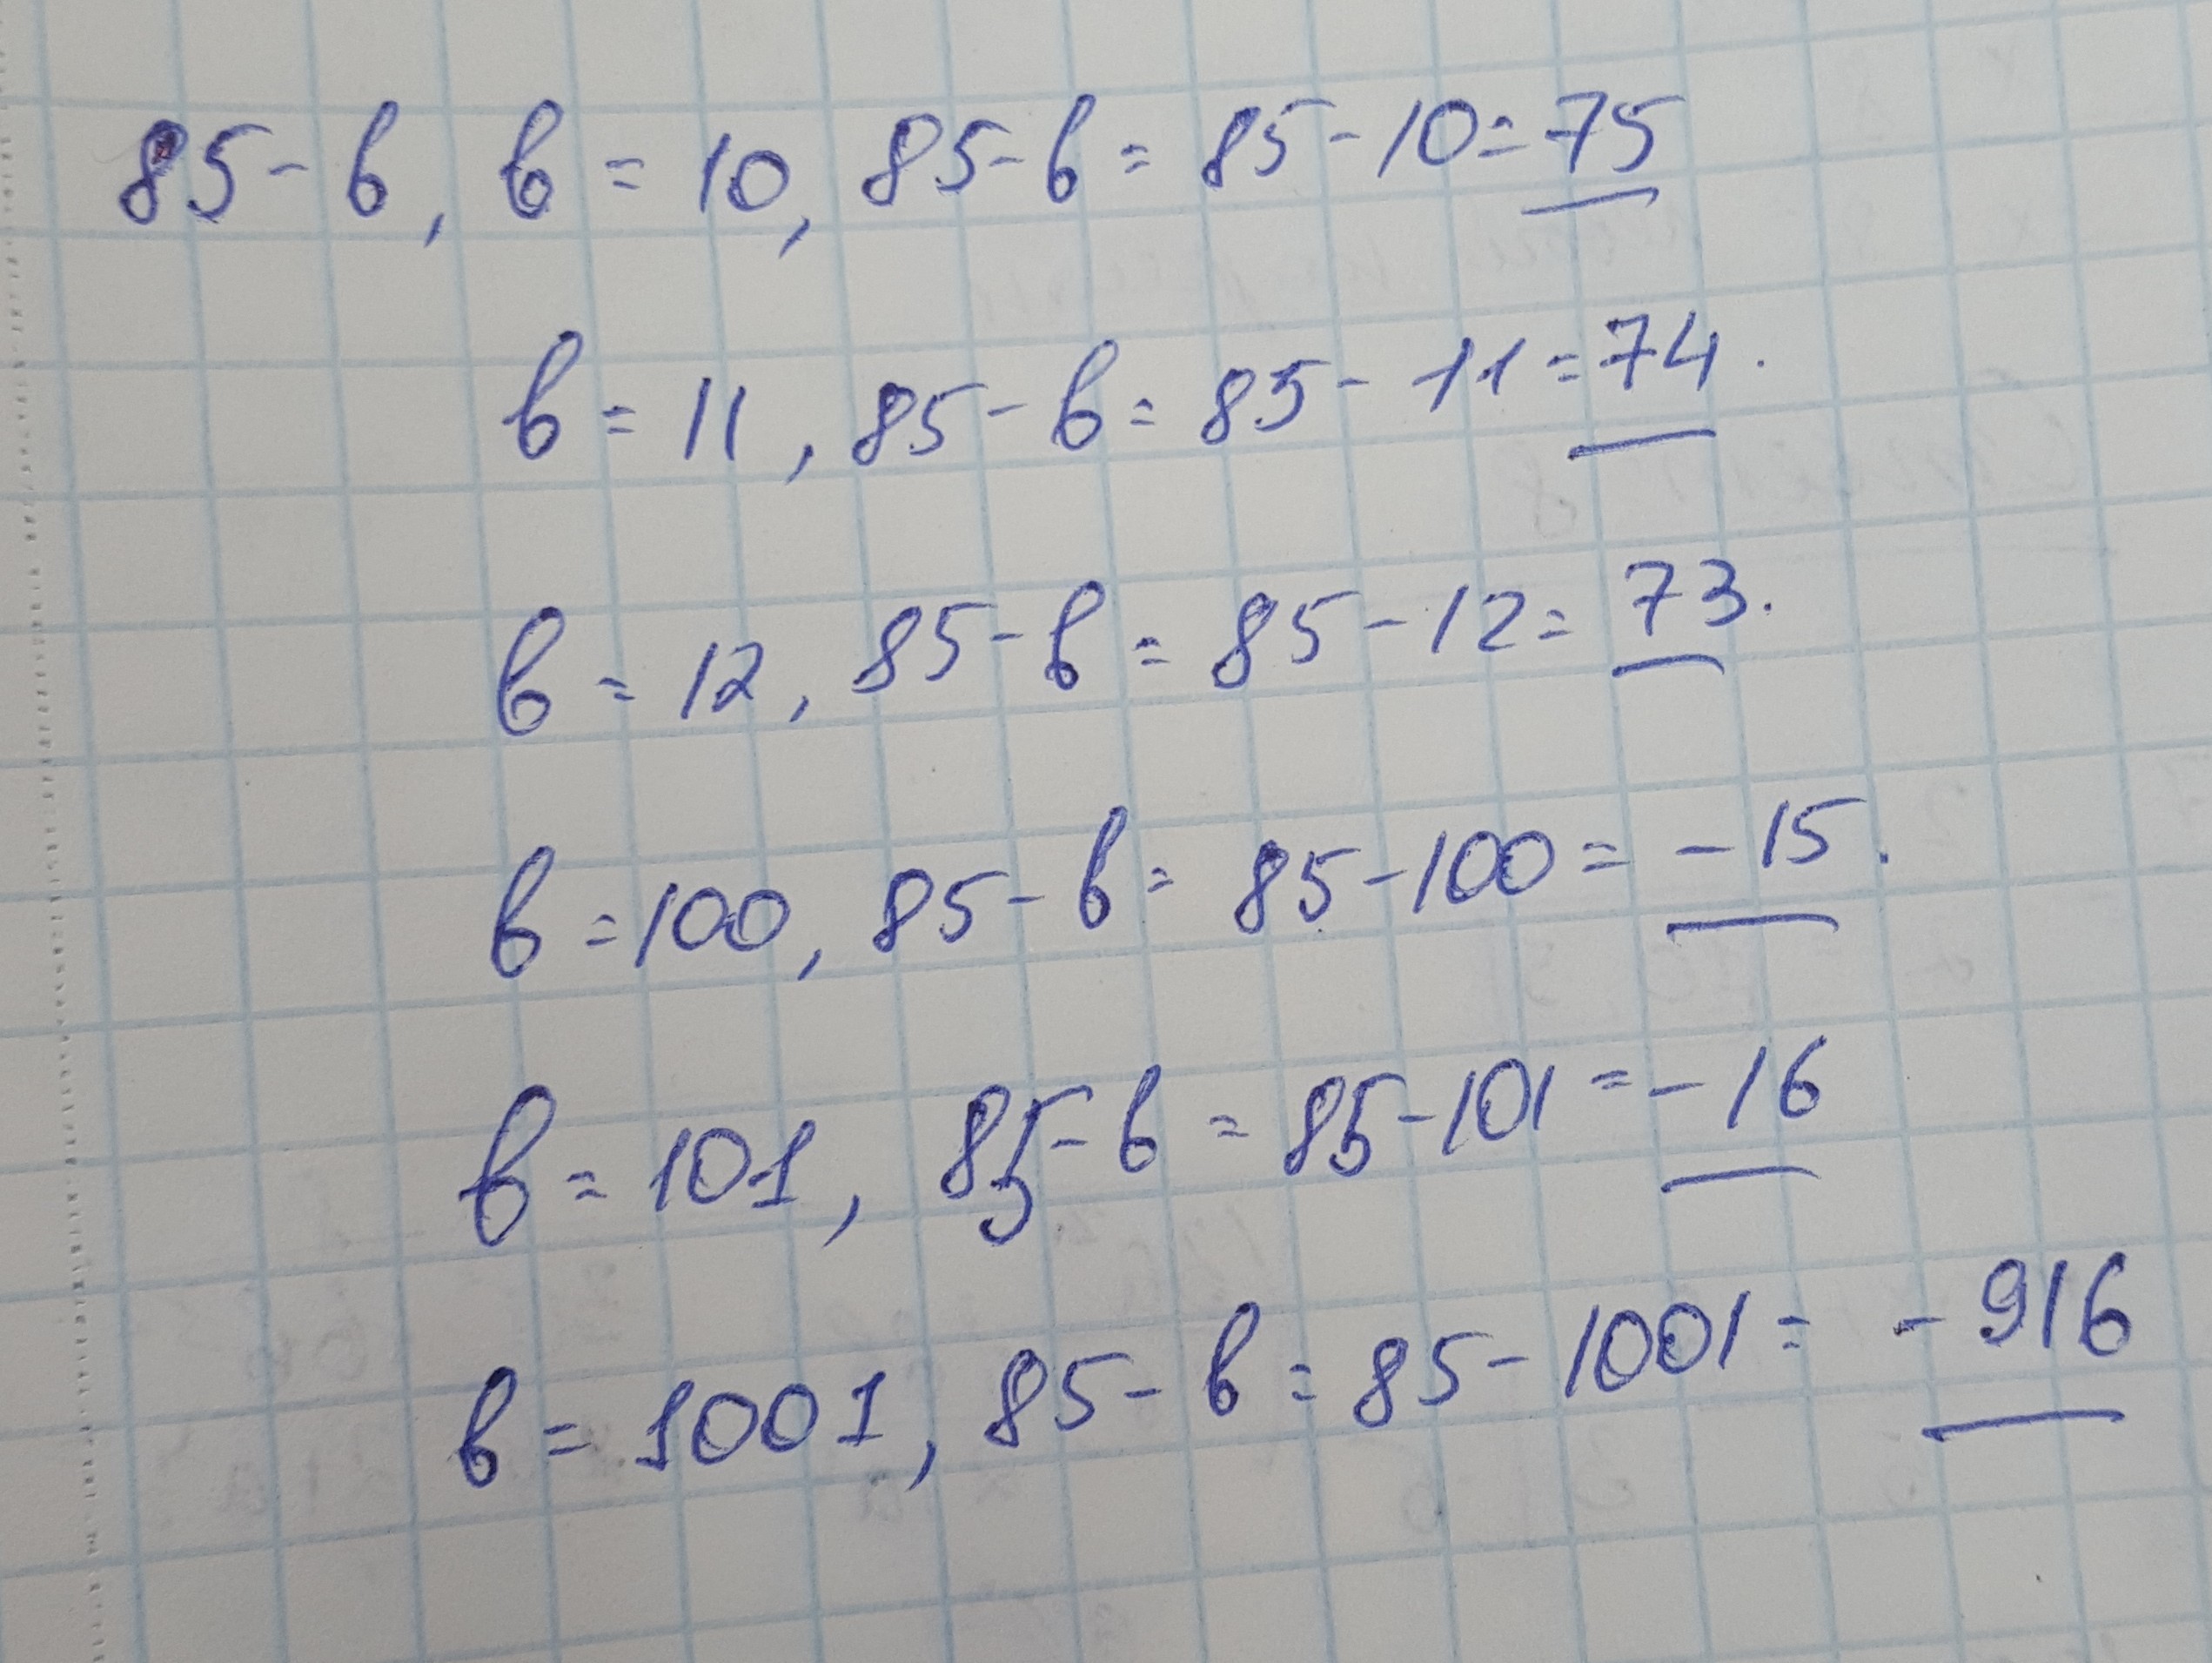 85-в, в = 10, 85-в = 85-10=75
в = 11, 85-в= 85-11=74.
в = 12, 85-в = 85-12= 73.
в =100, 85-в= 85-100= -15.
в = 101, 85-в = 85-101 =-16
в = 1001, 85-в = 85-1001= -916